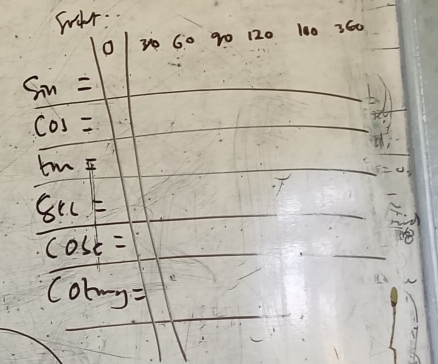 0 30 60 90 120 180 360
Sin =
Cos =
tan =
Sec =
Cosec =
Cotang =